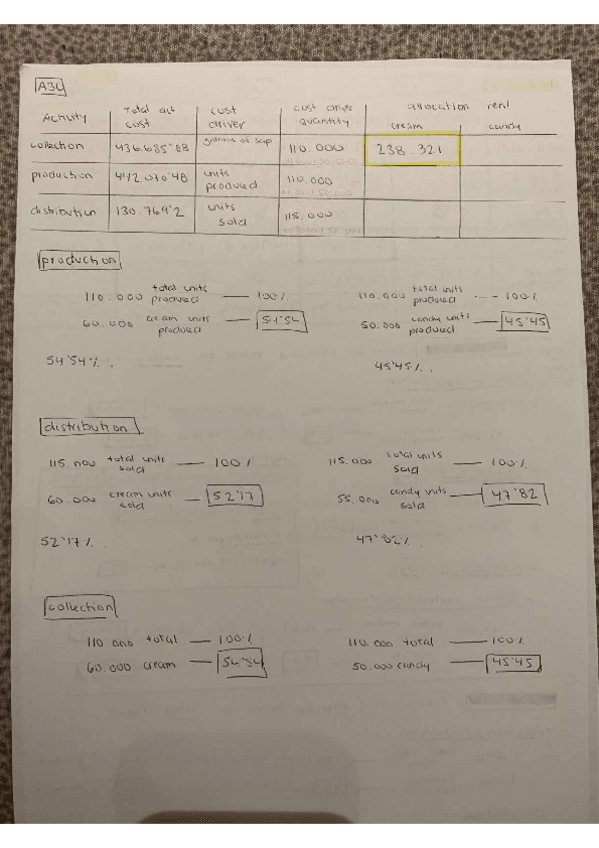 A3U
Activity Total act cost cost driver cost driver quantity allocation rent
cream candy
collection 436.685'88 grams of sap 110.000 238.321
production 412.010'48 units produced 110.000
distribution 130.769'2 units sold 115.000
production
110.000 total units produced — 100%
60.000 cream units produced — 54'54
54'54% .
110.000 total units produced --- 100%
50.000 candy units produced — 45'45
45'45% .
distribution
115.000 total units sold — 100%
60.000 cream units sold — 52'17
52'17% .
115.000 total units sold — 100%
55.000 candy units sold — 47'82
47'82% .
collection
110.000 total — 100%
60.000 cream — 54'54
110.000 total — 100%
50.000 candy — 45'45